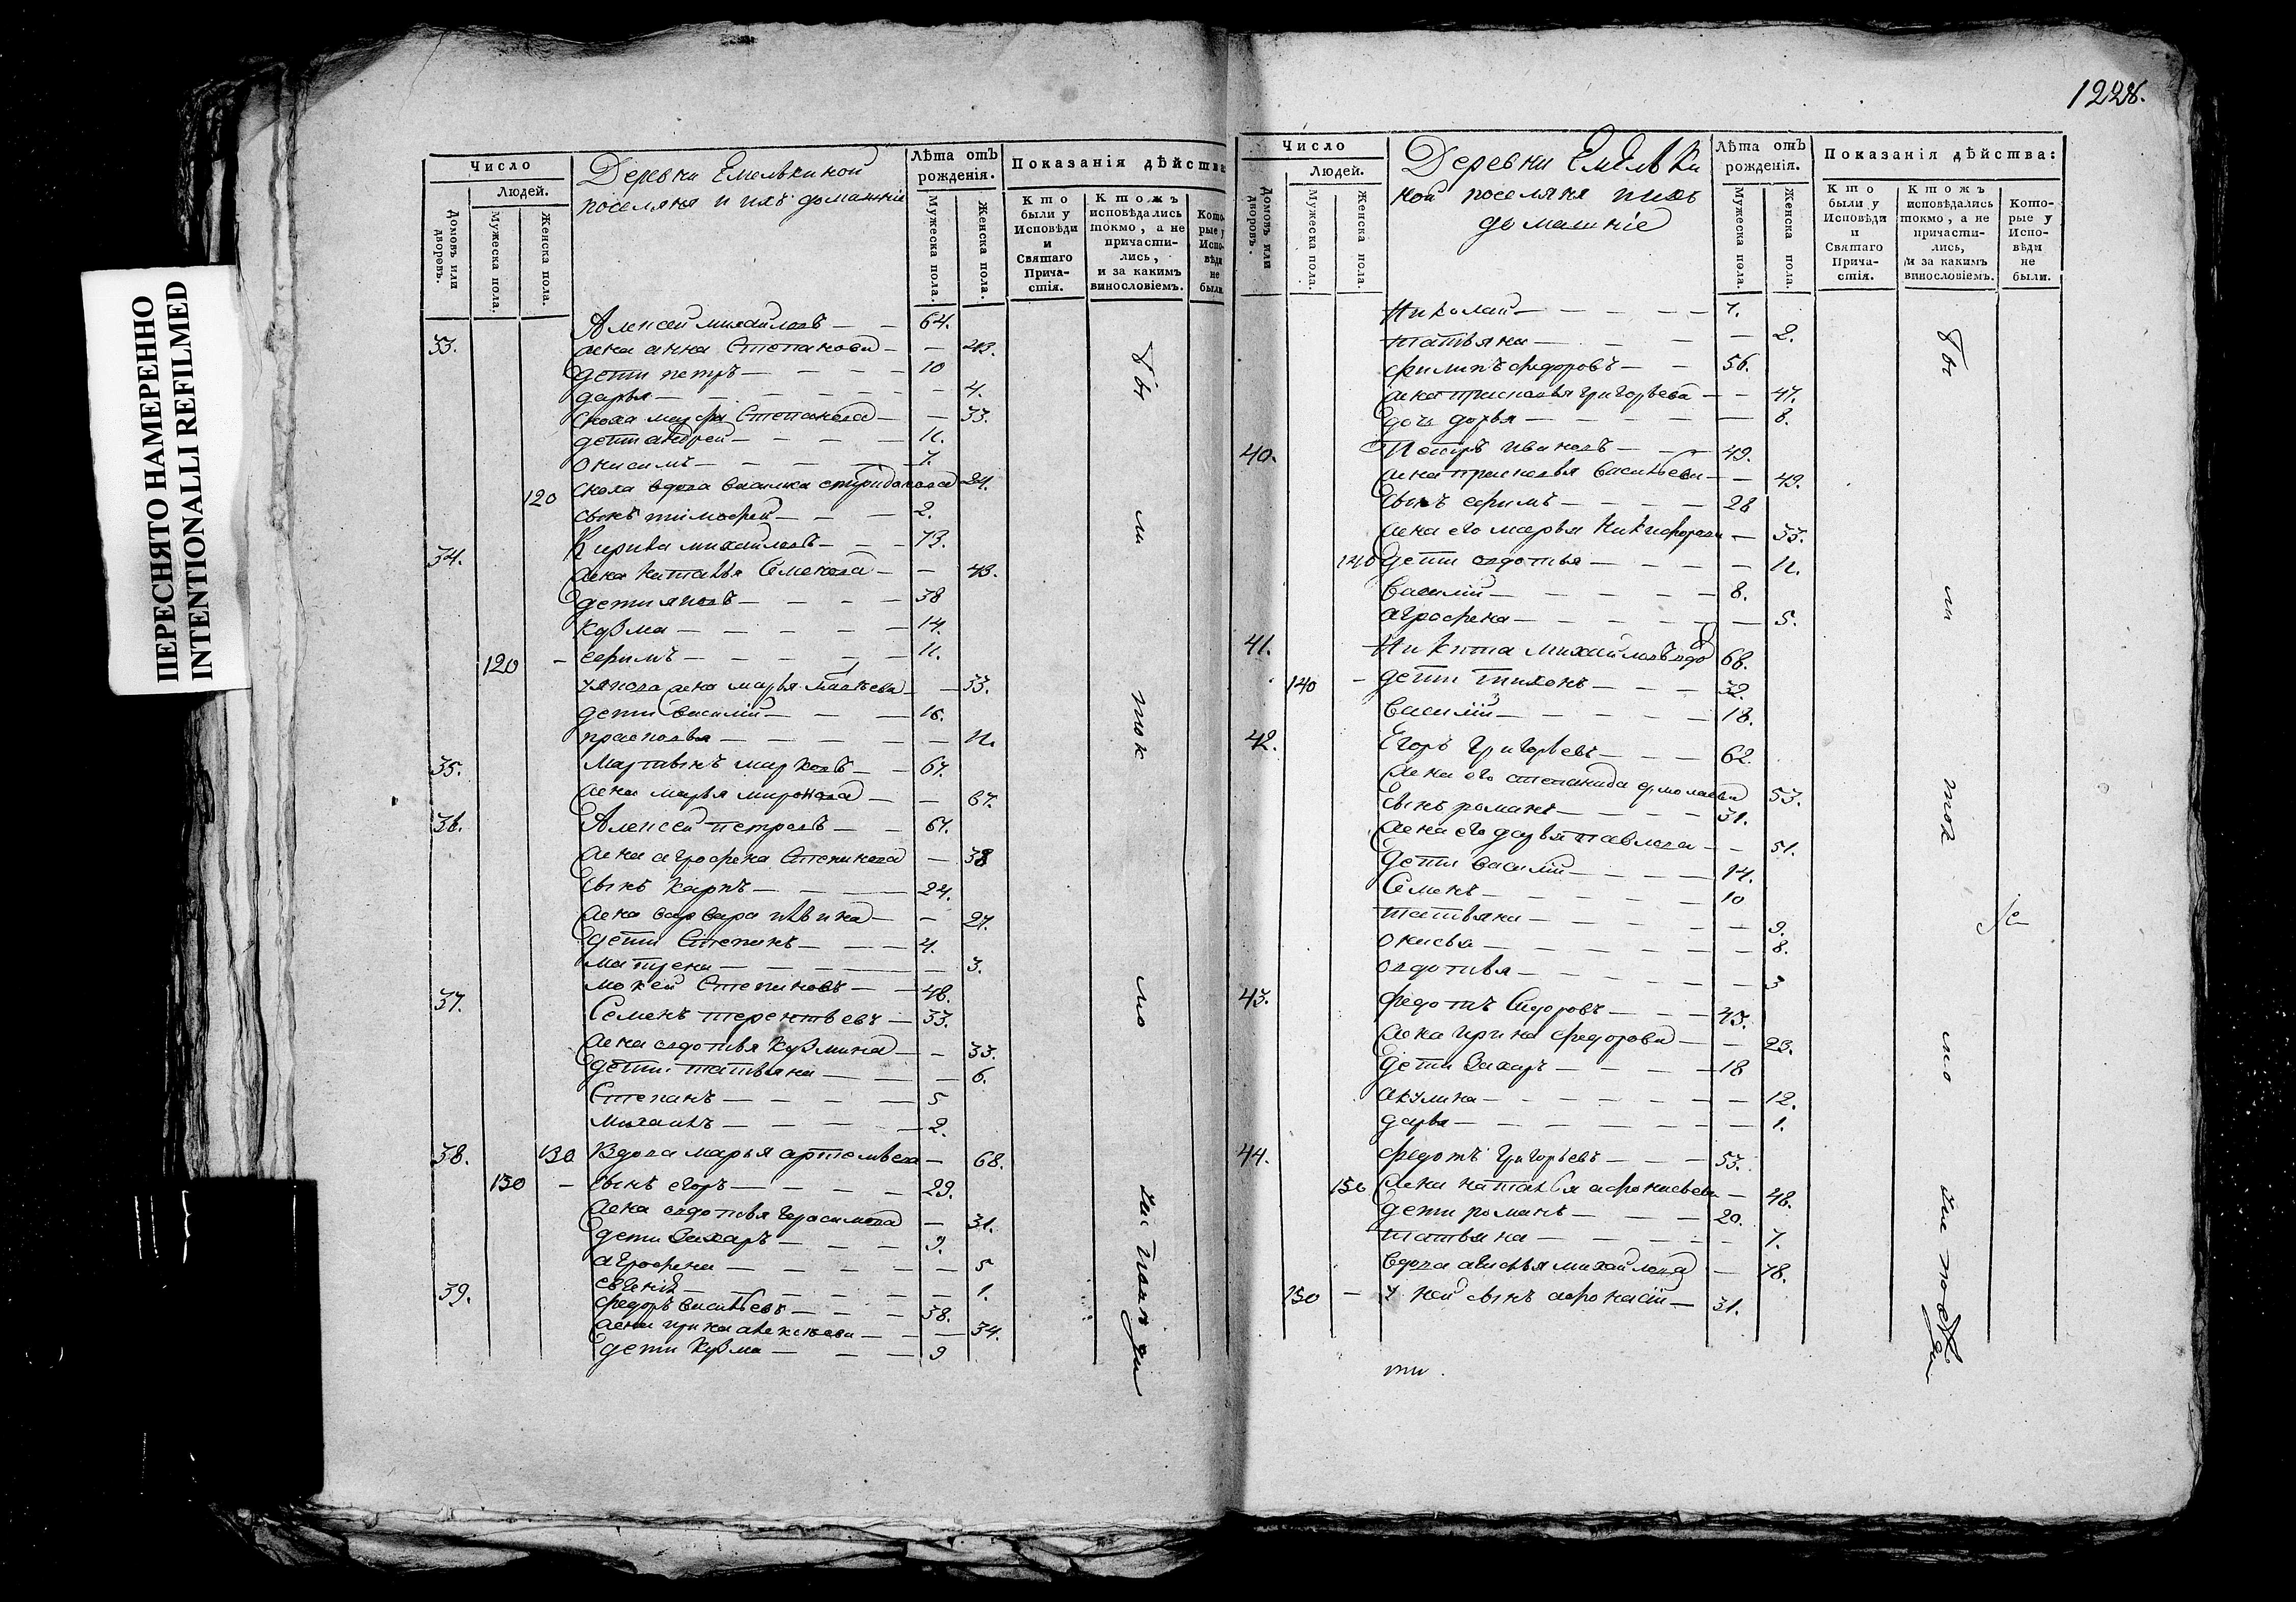 ПЕРЕСНЯТО НАМЕРЕННО
INTENTIONALLI REFILMED
Число
Людей.
Домовъ или дворовъ.
Мужеска пола.
Женска пола.
Деревни Емелькиной
поселяня и ихъ домашніе
Лѣта отъ рожденія.
Мужеска пола.
Женска пола.
Показанія дѣйства:
Кто были у Исповѣди и Святаго Прича-стія.
Ктожъ исповѣдались токмо, а не причасти-лись, и за какимъ винословіемъ.
Кото-рые у Испо-вѣди не были.
33. Алексей михайловъ — 64.
жена анна Степанова —
дети петръ — 10
дарья — 4.
сноха марфа Степанова — 33.
дети андрей — 11.
онисимъ — 7.
120 сноха вдова спиридонова 24.
сынъ тимофей — 2.
34. Кирила михайловъ — 73.
жена наталья Семенова — 43.
дети яковъ — 38
кузма — 14.
120 — ефимъ — 11.
уякова жена марья 33.
дети василій — 16.
прасковья — 11.
35. Мартынъ марковъ — 67.
жена марья миронова — 67.
36. Алексей петровъ — 67.
жена агрофена Степанова — 38
сынъ карпъ — 24.
жена варвара ильина — 27.
дети Степанъ — 4.
матрена — 3.
37. мокей Степановъ — 48.
Семенъ терентьевъ — 33.
жена овдотья кузмина — 33.
дети татьяна — 6.
Степанъ — 5
михаилъ — 2.
38. 130 Вдова марья артемьева — 68.
130 — сынъ егоръ — 29.
жена овдотья герасимова — 31.
дети Захаръ — 9.
агрофена — 5
евгенія — 1.
39. федоръ васильевъ — 38.
жена ирина алексеева — 34.
дети кузма — 9
1228.
Число
Людей.
Домовъ или дворовъ.
Мужеска пола.
Женска пола.
Деревни Емельки
ной поселяня ихъ
домашніе
Лѣта отъ рожденія.
Мужеска пола.
Женска пола.
Показанія дѣйства:
Кто были у Исповѣди и Святаго Прича-стія.
Ктожъ исповѣдались токмо, а не причасти-лись, и за какимъ винословіемъ.
Кото-рые у Испо-вѣди не были.
Николай — 7.
татьяна — 2.
филипъ федоровъ — 56.
жена прасковья григорьева — 47.
дочь дарья — 8.
40. Петръ ивановъ — 49.
жена прасковья васильева — 49.
сынъ ефимъ — 28
жена его марья Никифорова — 33.
140 дети овдотья — 11.
василій — 8.
агрофена — 5.
41. Никита михайловъ вдо 68.
140 — дети тихонъ — 32.
василій — 18.
42. Егоръ григорьевъ — 62.
жена его степанида ермолаева 53.
сынъ романъ — 31.
жена его дарья павлова — 51.
дети василій — 14.
Семенъ — 10
татьяна — 9.
8.
овдотья — 3
43. федотъ Сидоровъ — 43.
жена ирина федорова — 23.
дети Захаръ — 18
акулина — 12.
дарья — 1.
44. федотъ григорьевъ — 53.
150 жена наталья афонасьева — 48.
дети романъ — 20.
татьяна — 7.
вдова михайлова — 78.
150 — у ней сынъ афонасій — 31.
ти